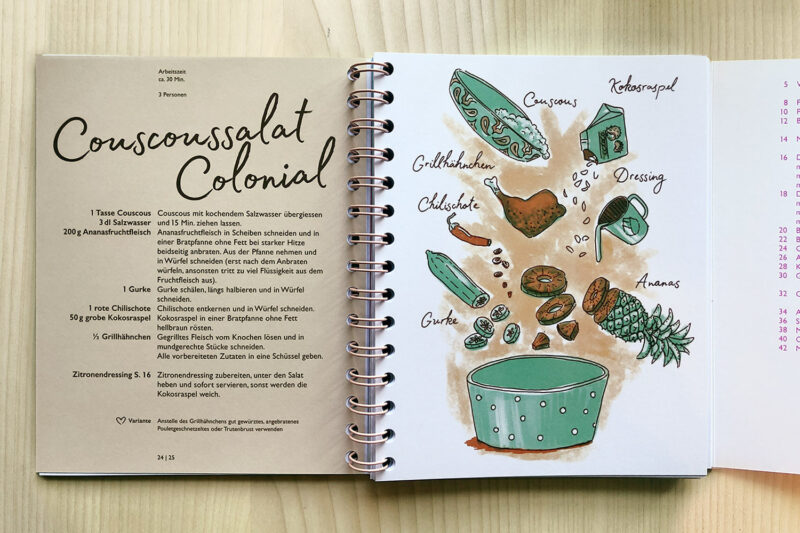 Arbeitszeit
ca. 30 Min.
3 Personen
Couscoussalat
Colonial
1 Tasse Couscous Couscous mit kochendem Salzwasser übergiessen
3 dl Salzwasser und 15 Min. ziehen lassen.
200 g Ananasfruchtfleisch Ananasfruchtfleisch in Scheiben schneiden und in
einer Bratpfanne ohne Fett bei starker Hitze
beidseitig anbraten. Aus der Pfanne nehmen und
in Würfel schneiden (erst nach dem Anbraten
würfeln, ansonsten tritt zu viel Flüssigkeit aus dem
Fruchtfleisch aus).
1 Gurke Gurke schälen, längs halbieren und in Würfel
schneiden.
1 rote Chilischote Chilischote entkernen und in Würfel schneiden.
50 g grobe Kokosraspel Kokosraspel in einer Bratpfanne ohne Fett
hellbraun rösten.
½ Grillhähnchen Gegrilltes Fleisch vom Knochen lösen und in
mundgerechte Stücke schneiden.
Alle vorbereiteten Zutaten in eine Schüssel geben.
Zitronendressing S. 16 Zitronendressing zubereiten, unter den Salat
heben und sofort servieren, sonst werden die
Kokosraspel weich.
Variante Anstelle des Grillhähnchens gut gewürztes, angebratenes
Pouletgeschnetzeltes oder Trutenbrust verwenden
24 | 25
Couscous
Kokosraspel
Grillhähnchen
Dressing
Chilischote
Ananas
Gurke
5
8
10
12
14
16
18
20
22
24
26
28
30
32
34
36
38
40
42